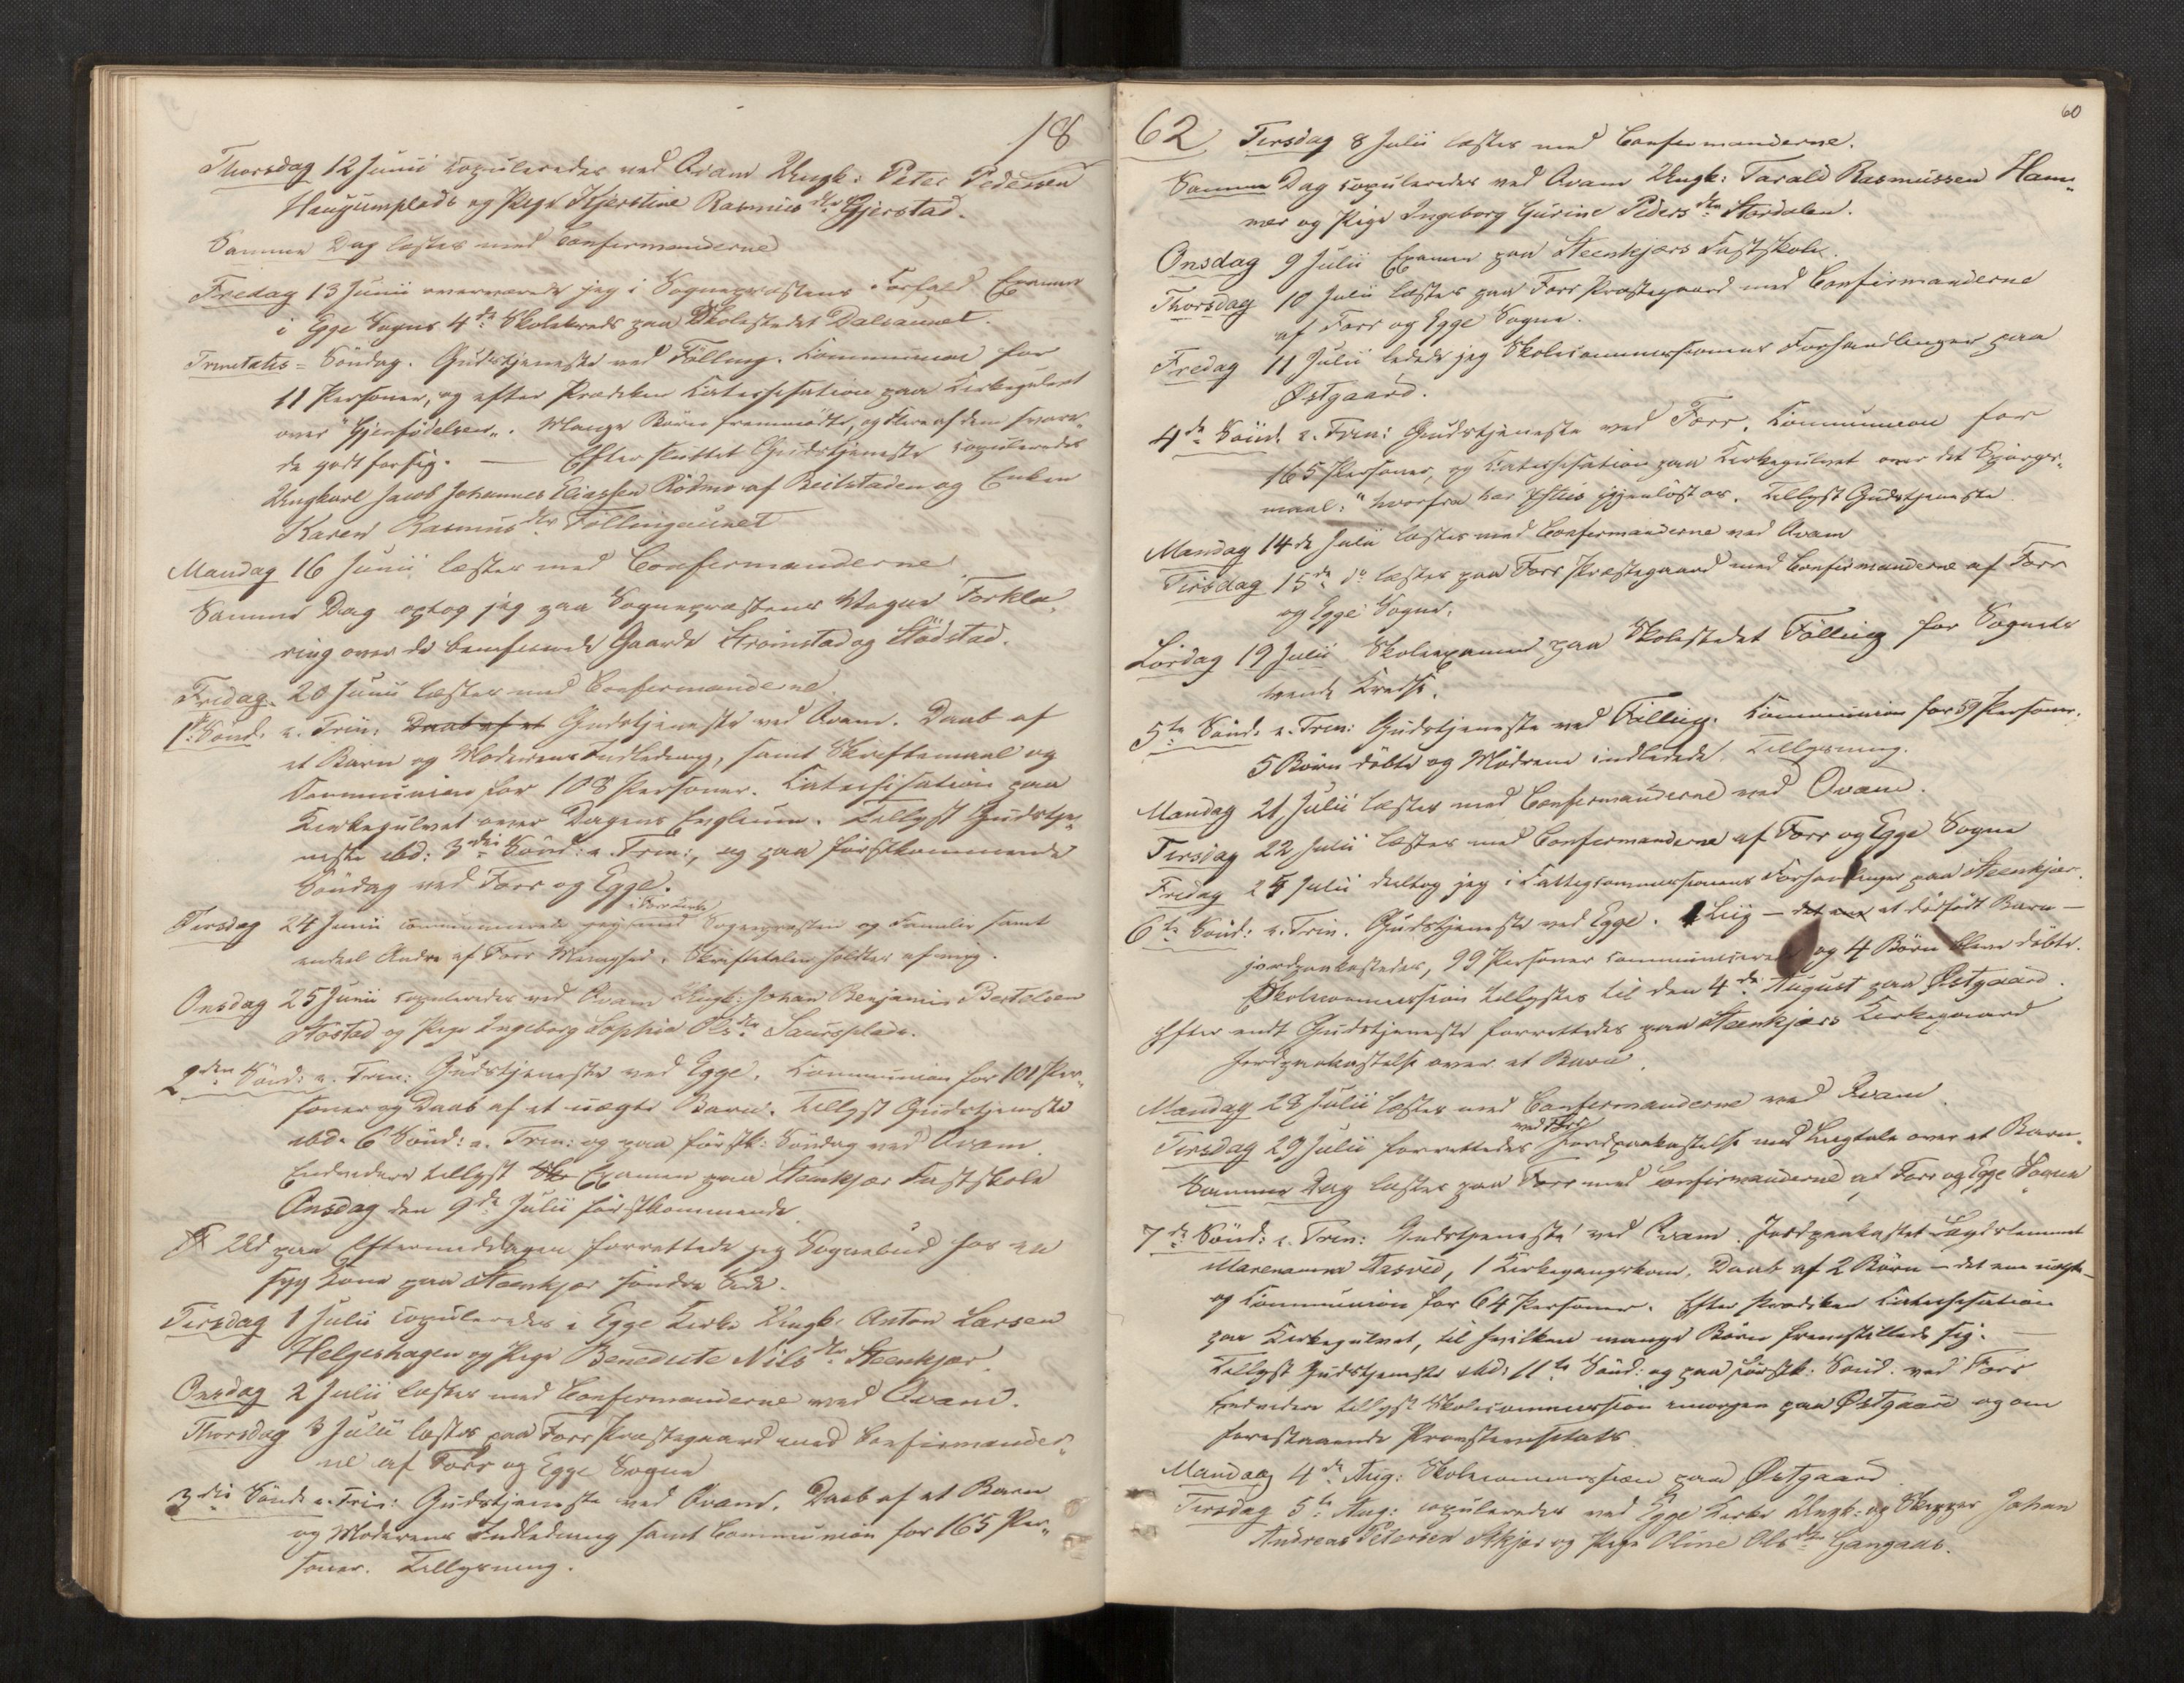 18
Thorsdag 12 Junii copuleredes ved Qvam Ungk: Peter Pedersen
Haugumplads og Pige Kjerstine Rasmusdtr Gjerstad.
Samme Dag læstes med Confirmanderne
Fredag 13 Junii overværede jeg i Sognepræstens Forfald Examen
i Egge Sogns 4de Skolekreds paa Skolestedet Dalsaunet.
Trinitatis-Søndag. Gudstjeneste ved Følling. Kommunion for
11 Personer, og efter Prædiken Katechisation paa Kirkegulvet
over "Gjenfødelsen„. Mange Børn fremmødte, og flere af dem svare„
de godt for sig. — Efter sluttet Gudstjeneste copuleredes
Ungkarl Jacob Johannes Eliassen Rødmo af Beitstaden og Enken
Karen Rasmusdtr Føllingaunet
Mandag 16 Junii læstes med Confirmanderne
Samme Dag optog jeg paa Sognepræstens Vegne Forkla„
ring over de beneficerede Gaarde Strømstad og Stødstad.
Fredag 20 Junii læstes med Confirmanderne.
1ste Sønd. e. Trin: Daab af et Gudstjeneste ved Qvam. Daab af
et Barn og Moderens Indledning, samt Skriftemaal og
Communion for 108 Personer. Katechisation paa
Kirkegulvet over Dagens Evglium. Tillyst Gudstje„
neste ibd: 3die Sønd: e. Trin:, og paa førstkommende
Søndag ved Forr og Egge.
i Forr Kirke
Tirsdag 24 Junii communicerede jeg med Sognepræsten og Familie samt
endeel Andre af Forr Menighed. Skriftetalen holdtes af mig.
Onsdag 25 Junii copuleredes ved Qvam Ungk: Johan Benjamin Bertelsen
Stostad og Pige Ingeborg Sophia Olsdtr Saursplads.
2den Sønd: e. Trin: Gudstjeneste ved Egge. Kommunion for 101 Per„
soner og Daab af et uægte Barn. Tillyst Gudstjeneste
ibd. 6 Sønd: e. Trin: og paa førstk: Søndag ved Qvam.
Endvidere tillyst Sk Examen paa Steenkjær Fastskole
Onsdag den 9de Julii førstkommende
Ud paa Eftermiddagen forrettede jeg Sognebud hos en
syg Kone paa Steenkjær søndre Side.
Tirsdag 1 Julii copuleredes i Egge Kirke Ungk: Anton Larsen
Helgeshagen og Pige Benedicte Nilsdtr Steenkjær.
Onsdag 2 Julii læstes med Confirmanderne ved Qvam.
Thorsdag 3 Julii læstes paa Forr Præstegaard med Confirmander„
ne af Forr og Egge Sogne
3die Sønd: e. Trin: Gudstjeneste ved Qvam. Daab af et Barn
og Moderens Indledning samt Communion for 165 Per„
soner. Tillysning.
62
60
Tirsdag 8 Julii læstes med Confirmanderne.
Samme Dag copuleredes ved Qvam Ungk: Tarald Rasmussen Ham„
mer og Pige Ingeborg Gurine Pedersdtr Stordalen.
Onsdag 9 Julii Examen paa Steenkjærs Fastskole.
Thorsdag 10 Julii læstes paa Forr Præstegaard med Confirmanderne
af Forr og Egge Sogne.
Fredag 11 Julii ledede jeg Skolecommissionens Forhandlinger paa
Østgaard.
4de Sønd. e. Trin: Gudstjeneste ved Forr. Kommunion for
165 Personer, og Katechisation paa Kirkegulvet over det Spørgs„
maal: "hvorfra har Chstus igjenløst os. Tillyst Gudstjeneste
Mandag 14de Julii læstes med Confirmanderne ved Qvam
Tirsdag 15de do læstes paa Forr Præstegaard med Confirmanderne af Forr
og Egge Sogne.
Lørdag 19 Julii Skoleexamen paa Skolestedet Følling for Sognets
tvende Kredse.
5te Sønd. e. Trin: Gudstjeneste ved Følling. Kommunion for 59 Personer.
5 Børn døbte og Mødrene indledede. Tillysning.
Mandag 21 Julii læstes med Confirmanderne ved Qvam.
Tirsdag 22 Julii læstes med Confirmanderne af Forr og Egge Sogne
Fredag 25 Julii deeltog jeg i Fattigcommissionens Forhandlinger paa Steenkjær.
6te Sønd: e. Trin. Gudstjeneste ved Egge. 1 Liig — det ene et dødfødt Barn —
jordpaakastedes, 99 Personer communicerede og 4 Børn bleve døbte.
Skolecommission tillystes til den 4de August paa Østgaard.
Efter endt Gudstjeneste forrettedes paa Steenkjærs Kirkegaard
Jordpaakastelse over et Barn.
Mandag 28 Julii læstes med Confirmanderne ved Qvam.
ved Forr
Tirsdag 29 Julii forrettedes Jordpaakastelse med Liigtale over et Barn.
Samme Dag læstes paa Forr med Confirmanderne af Forr og Egge Sogne
7de Sønd: e. Trin: Gudstjeneste ved Qvam. Jordpaakastet Lægdslemmet
Marenanna Aasved, 1 Kirkegangskone. Daab af 2 Børn — det ene uægte —
og Communion for 64 Personer. Efter Prædiken Katechisation
paa Kirkegulvet, til hvilken mange Børn fremstillede sig. —
Tillyst Gudstjeneste ibd: 11te Sønd: og paa førstk: Sønd: ved Forr
Endvidere tillyst Skolecommission imorgen paa Østgaard og om
forestaaende Provstevisitats
Mandag 4de Aug: Skolecommission paa Østgaard
Tirsdag 5te Aug: copuleredes ved Egge Kirke Ungk: og Skipper Johan
Andreas Petersen Askjær og Pige Oline Olsdtr Gangaas.